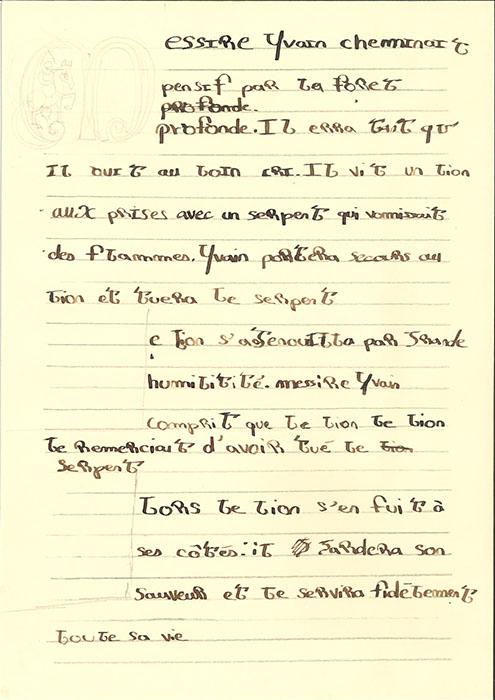 M
essire Yvain cheminait
pensif par la foret
profonde.
profonde. Il erra tant qu'
Il ouit au loin cri. Il vit un lion
aux prises avec un serpent qui vomissait
des flammes. Yvain portera secours au
lion et tuera le serpent
e lion s'agenouilla par grande
humilitité. messire Yvain
comprit que le lion le lion
le remerciait d'avoir tué le lion
serpent
lors le lion s'en fuit à
ses côtés: il gardera son
sauveur et le servira fidèlement
toute sa vie